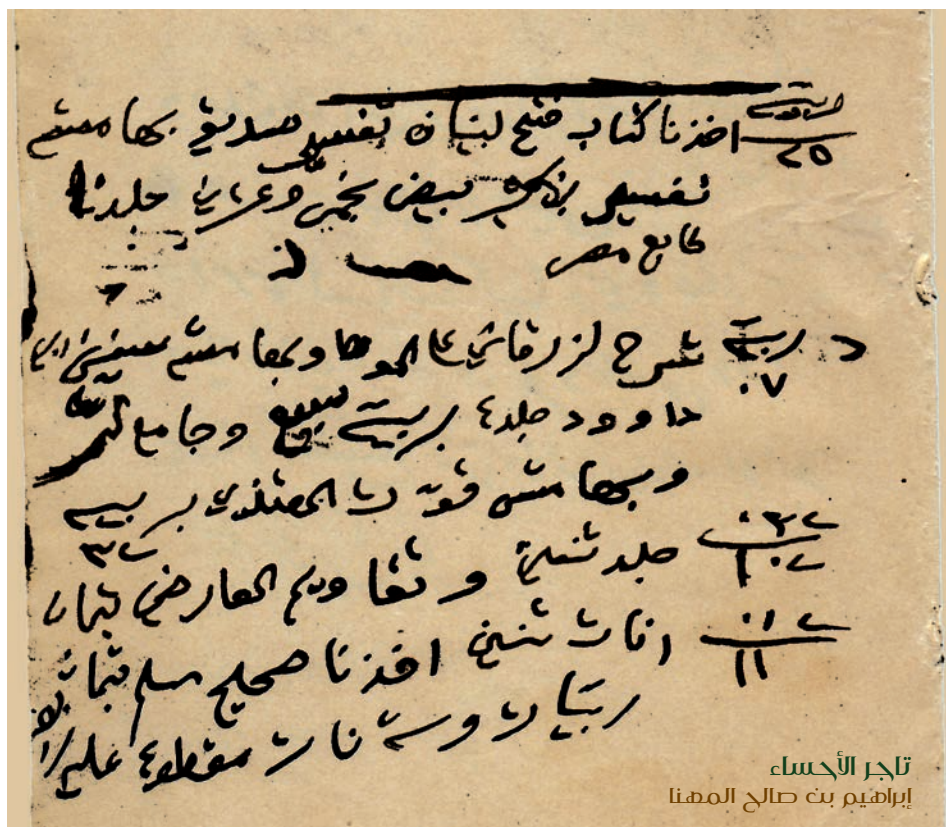 ربية
٢٥
اخذنا كتاب فتح لبيان تفسير صديق بهامشه
تفسير بن كثير بيض بخمس وعشرين جلد
طابع مصر
ربية
٧
شرح لزرقاني على الموطا وبهامشه سنن ابي
داوود جلد ٤ بربية سبع وجامع
وبهامش قوت المغتذي بربيه
٣٢
جلد ثنين وثقا ويم العارض بثمان
انات ثنين اخذنا صحيح مسلم بثمان
ربيات وسته نات مقطوعه عليه
تاجر الأحساء
إبراهيم بن صالح المهنا